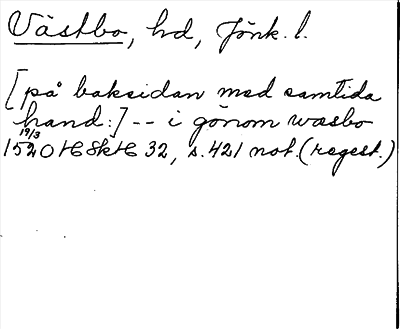 Västbo, hd, Jönk. l.
[på baksidan med samtida
hand:] -- i gönom wæsbo
19/3
1520 HSkH 32, s. 421 not. (regest.)